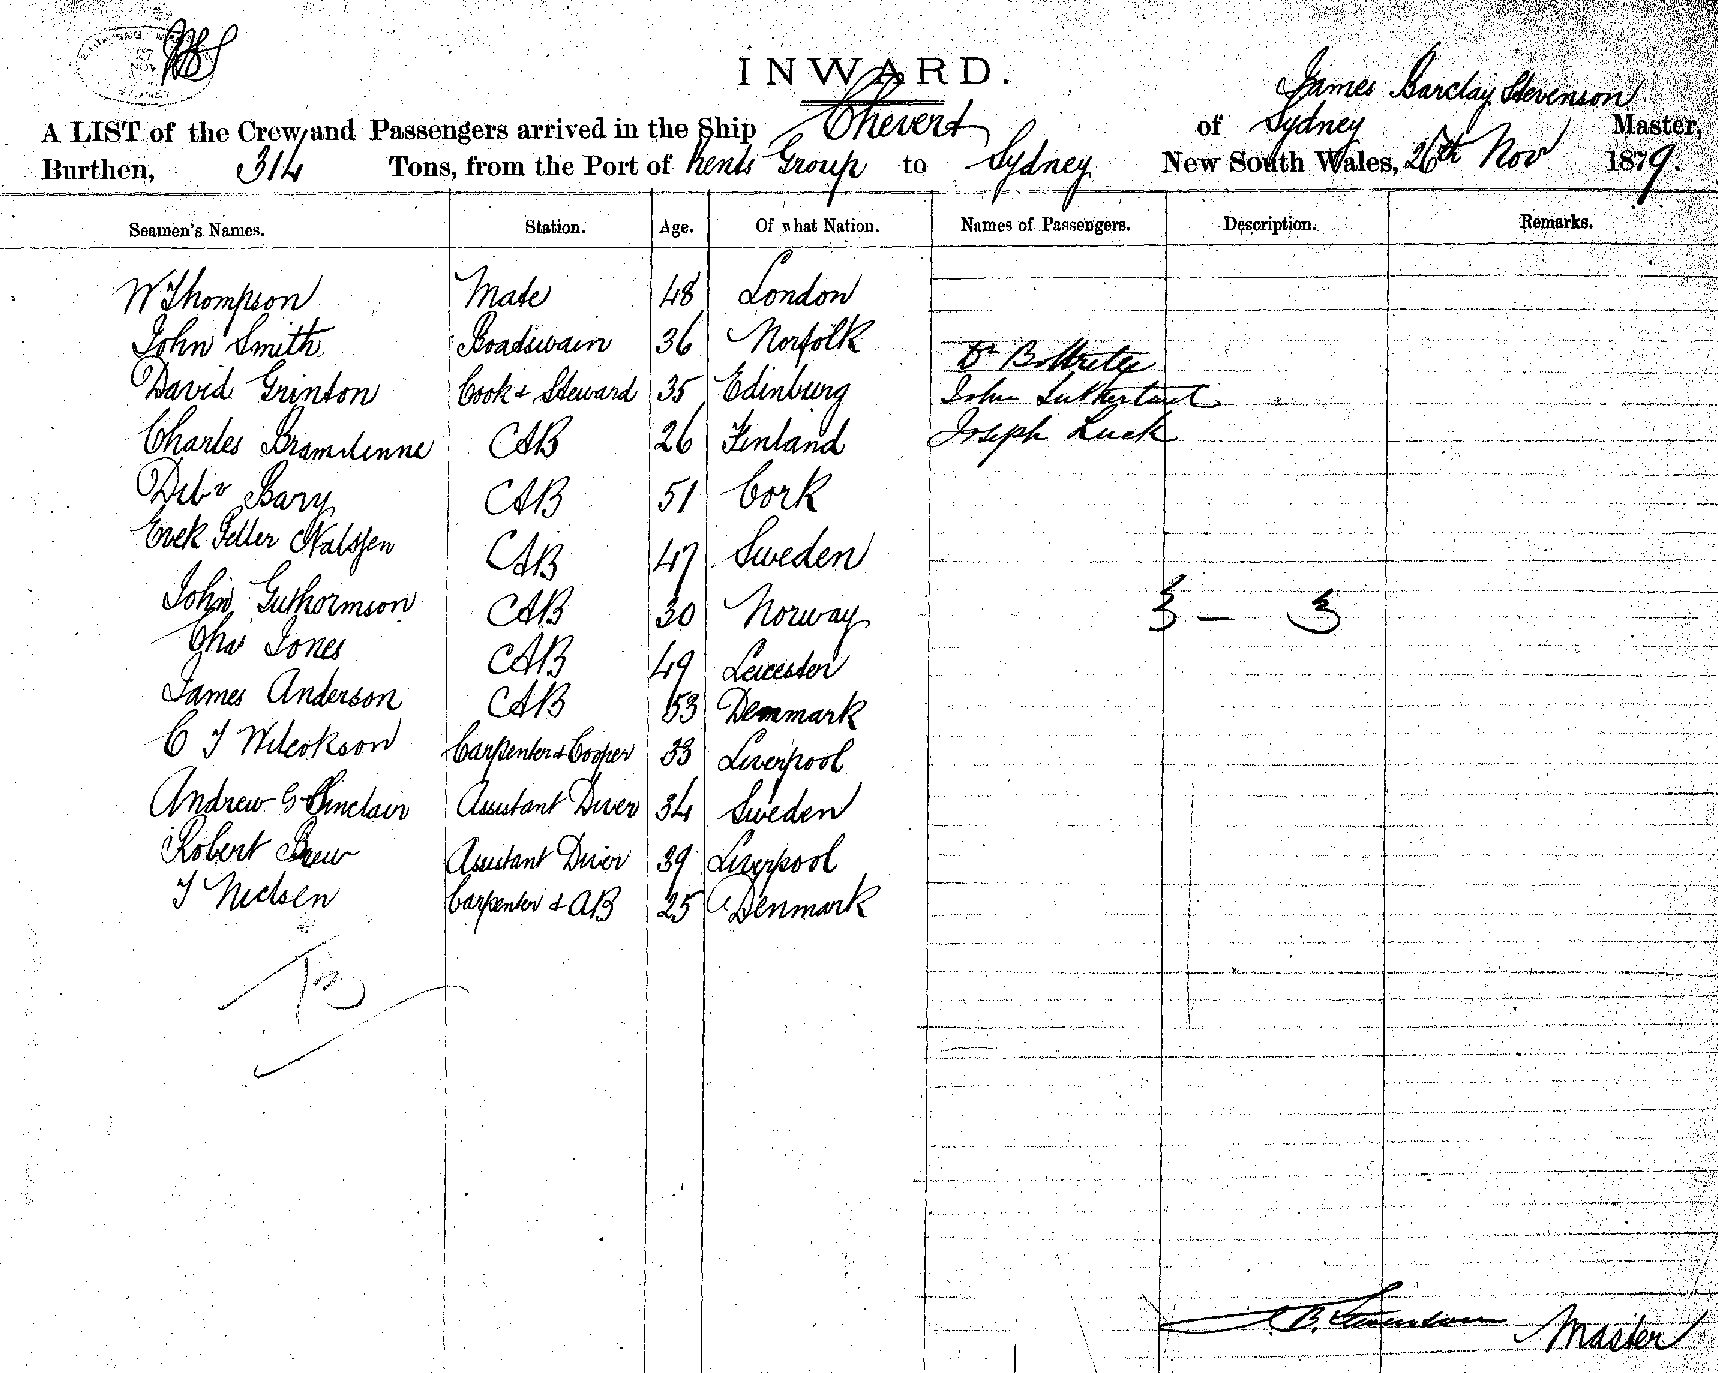 INWARD.
James Barclay Stevenson
A LIST of the Crew and Passengers arrived in the Ship Chevert of Sydney Master,
Burthen, 314 Tons, from the Port of Kents Group to Sydney New South Wales, 26th Nov 1879.
Seamen's Names. Station. Age. Of what Nation. Names of Passengers. Description. Remarks.
W Thompson Mate 48 London
John Smith Boadswain 36 Norfolk
Dr
David Grinton Cook & Steward 35 Edinburg John Sutherland
Charles CAB 26 Finland Joseph Luck
Bary CAB 51 Cork
Feller CAB 47 Sweden
John Guthormson CAB 30 Norway
Chas Jones CAB 49 Leicester
James Anderson CAB 53 Denmark
C J Wilcokson Carpenter & Cooper 33 Liverpool
Andrew G Sinclair Assistant Diver 34 Sweden
Robert Brew Assistant Diver 39 Liverpool
J Nielsen Carpenter & AB 25 Denmark
3 — 3
J. B. Stevenson Master